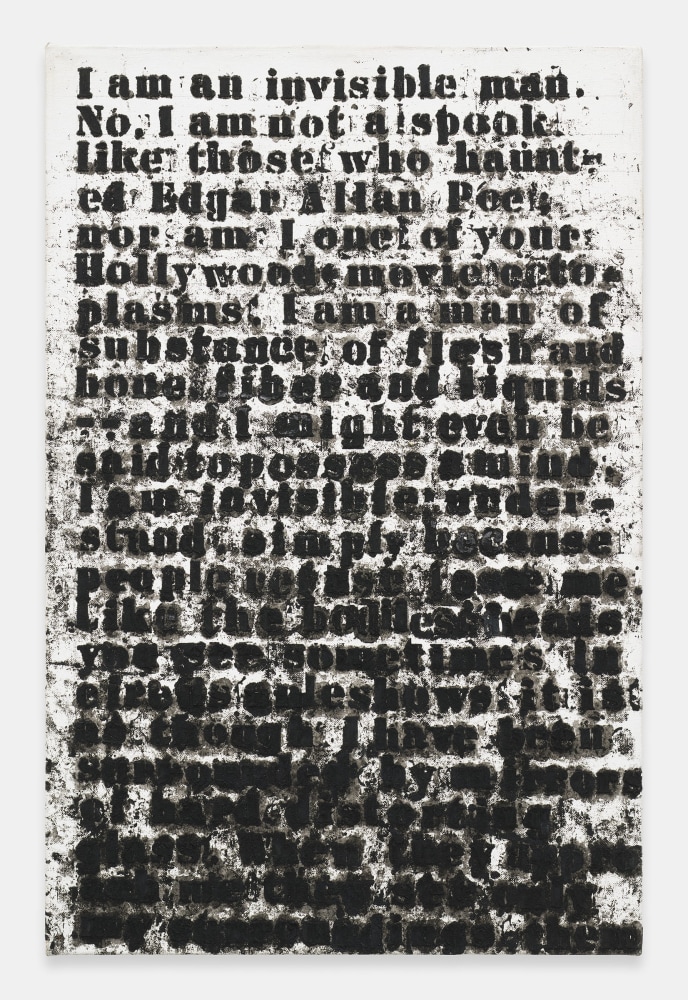 I am an invisible man.
No, I am not a spook
like those who haunt-
ed Edgar Allan Poe,
nor am I one of your
Hollywood-movie ecto-
plasms. I am a man of
substance, of flesh and
bone, fiber and liquids
--and I might even be
said to possess a mind.
I am invisible, under-
stand, simply because
people refuse to see me.
Like the bodiless heads
you see sometimes in
circus sideshows, it is
as though I have been
surrounded by mirrors
of hard, distorting
glass. When they
me they see only
my